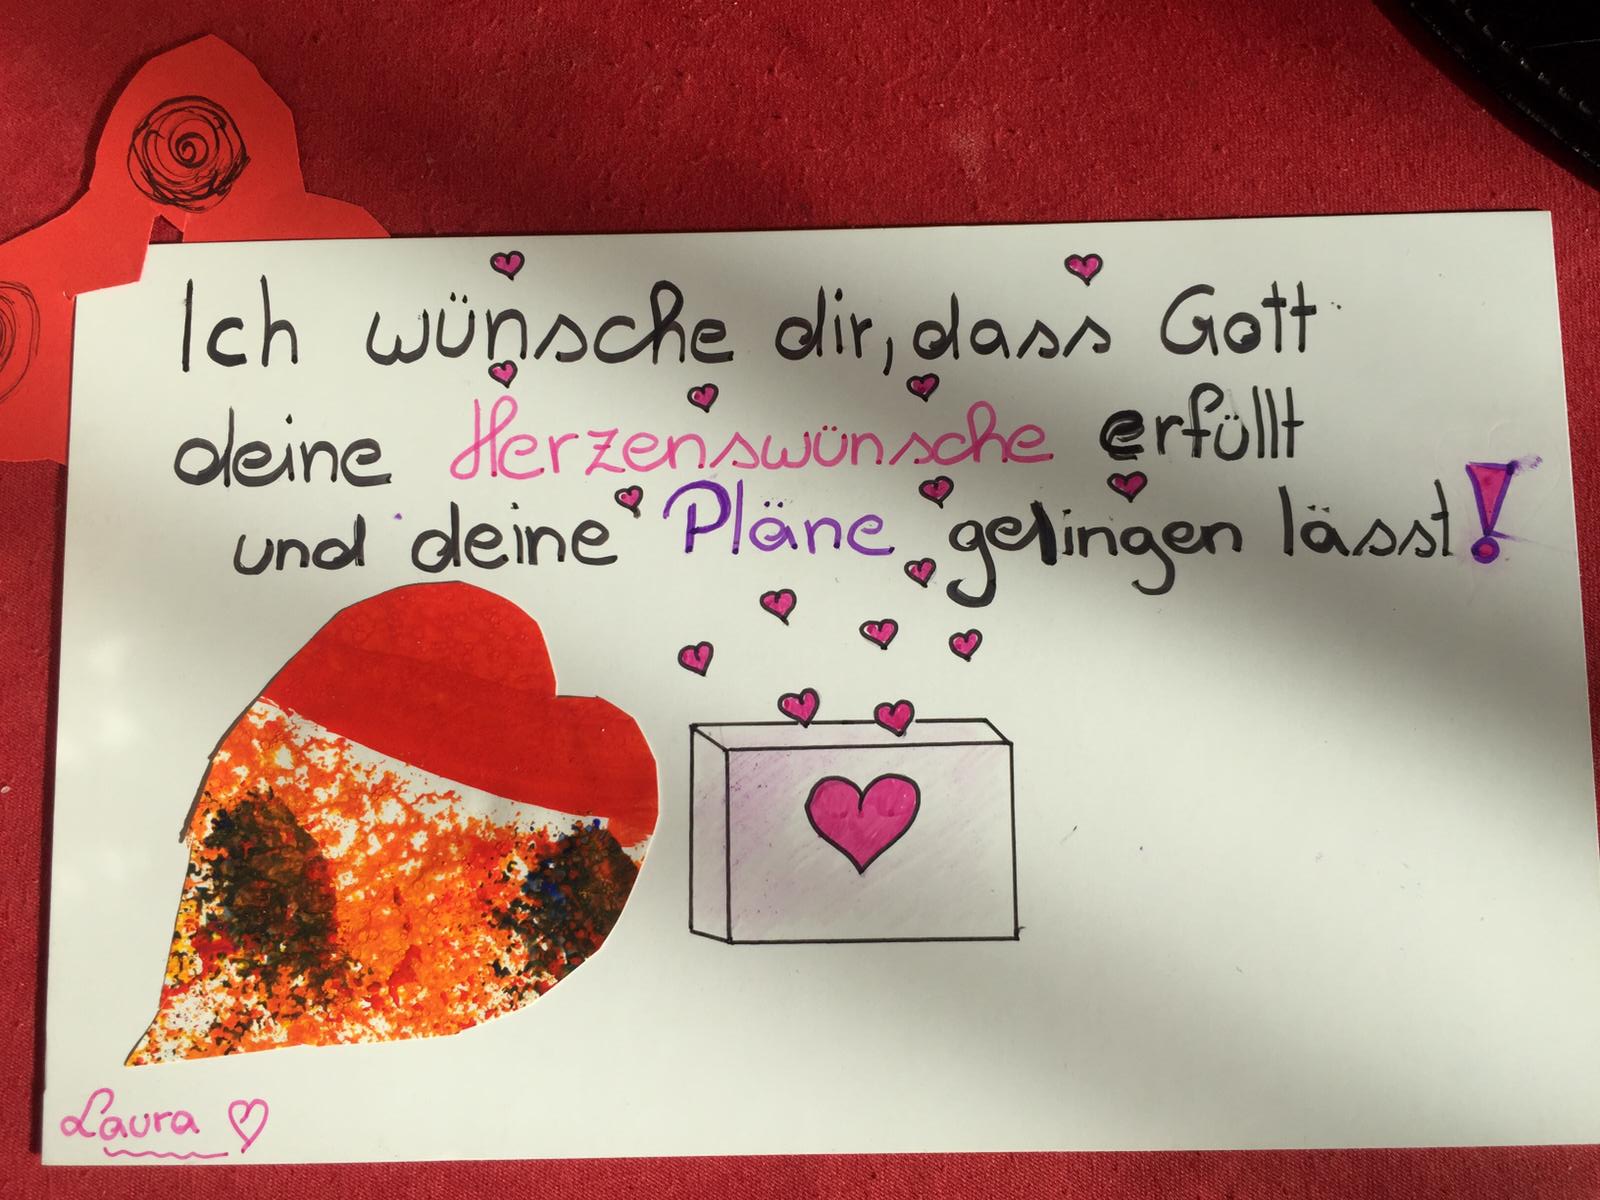 Ich wünsche dir, dass Gott
deine Herzenswünsche erfüllt
und deine Pläne gelingen lässt!
Laura